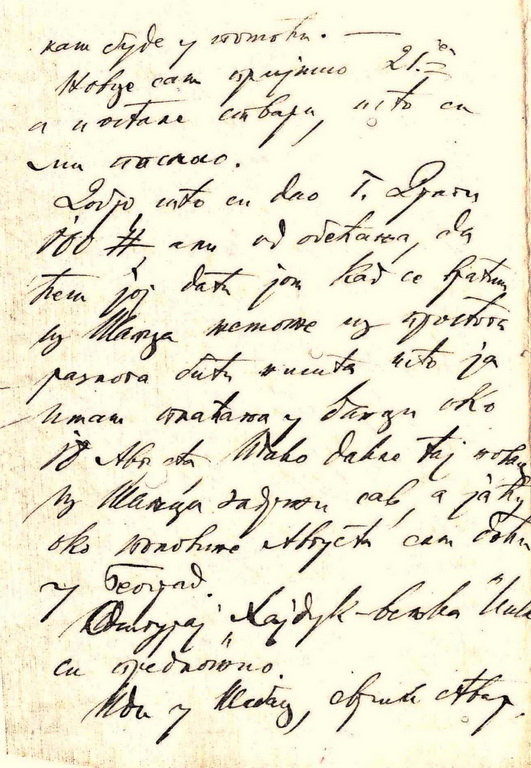 кат буде у готови. —
Новце сам примио 21.
а и остале ствари, што си
ми послао.
Добро што си дао Г. Драги
100 #, али од обећања, да
ћем јој дати још кад се вратим
из Шапца неможе из простога
разлога бити ништа што ја
имам плаћања у банци око
10 Августа. Тако дакле тај новац
из Шапца задржи сав, а ја ћу
око половине Августа сам доћи
у Београд.
„Хајдук-Вељка"
си предложио.
Иди у Шабац, сврши ствар.